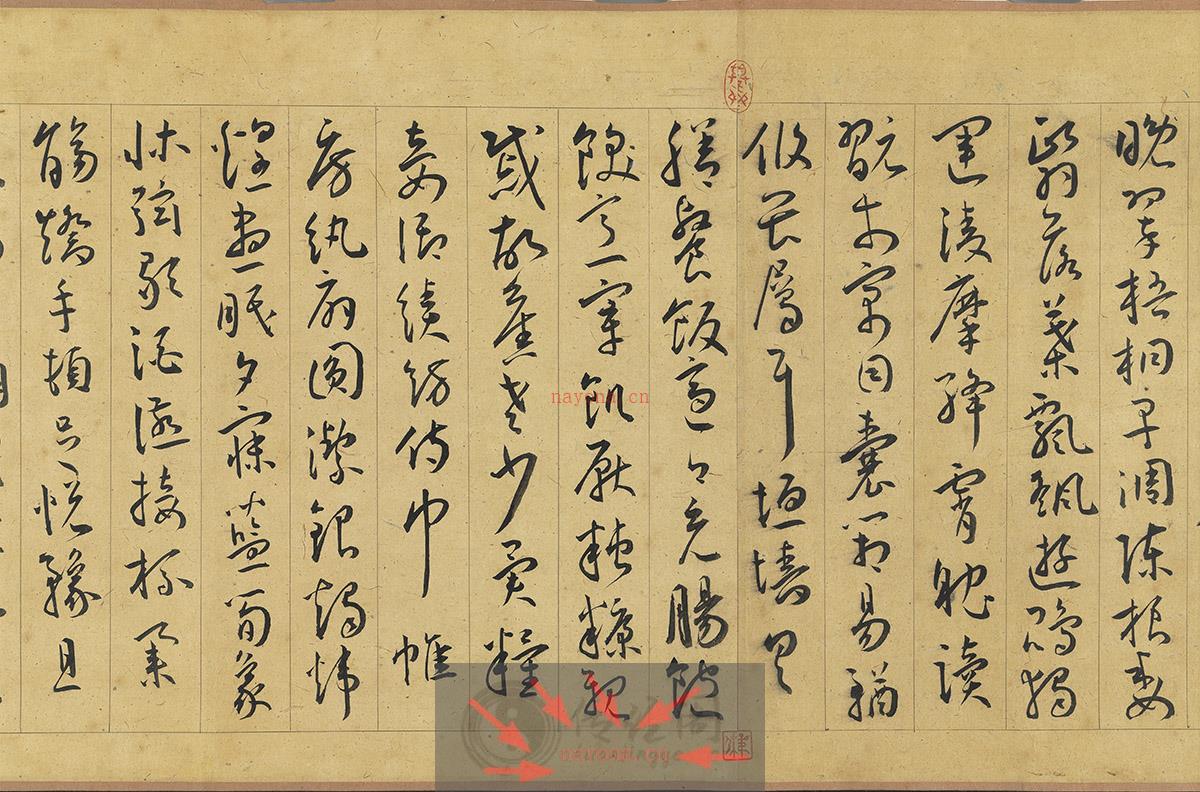 晚翠梧桐早凋陳根委
翳落葉飄颻遊鵾獨
運凌摩絳霄耽讀
翫市寓目囊箱易輶
攸畏屬耳垣墻具
膳餐飯適口充腸飽
飫烹宰飢厭糟糠親
戚故舊老少異糧
妾御績紡侍巾帷
房紈扇圓潔銀燭煒
煌晝眠夕寐藍筍象
牀弦歌酒讌接杯舉
觴矯手頓足悅豫且
nayona.cn